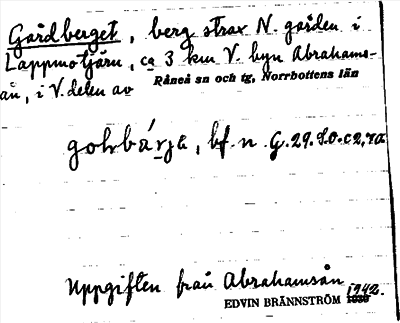 Gårdberget, berg strax N. gården i
Lappmotjärn, ca 3 km V. byn Abrahams-
ån, i V. delen av
Råneå sn och tg, Norrbottens län
bf. n. G. 29.
Uppgiften från Abrahamsån
1942.
EDVIN BRÄNNSTRÖM